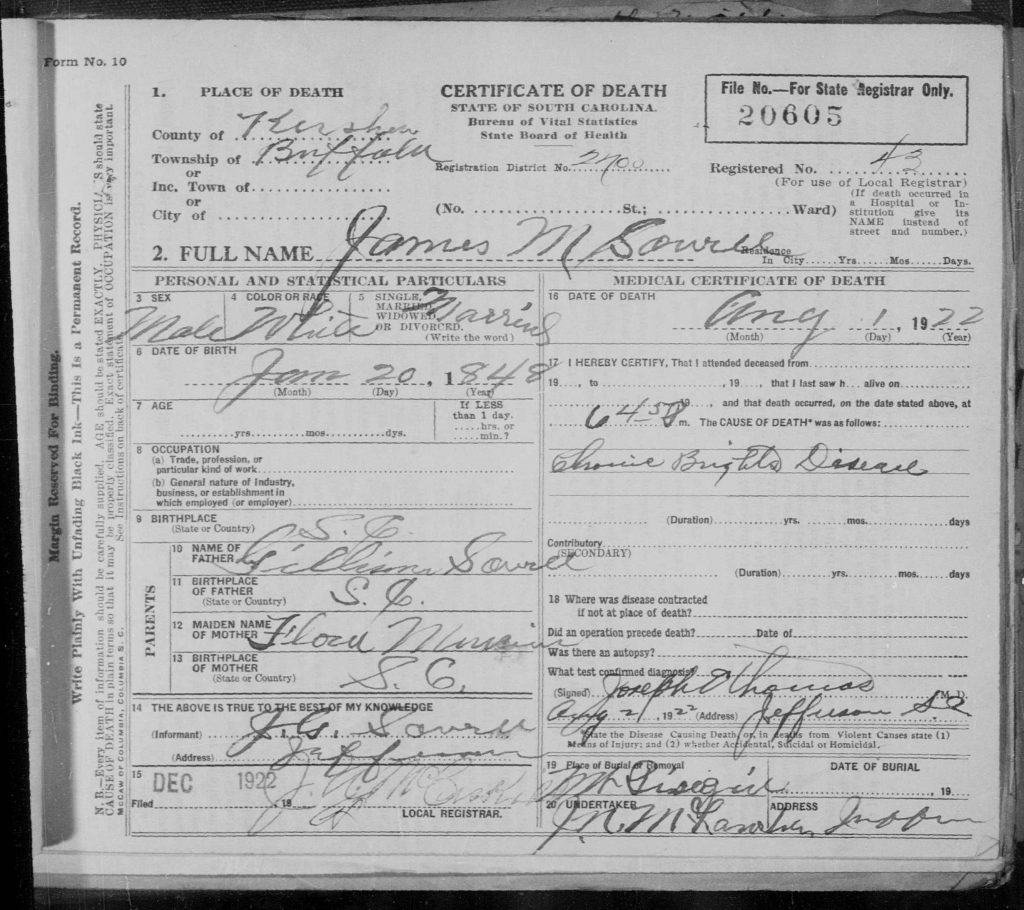 Form No. 10
Margin Reserved For Binding.
Write Plainly With Unfading Black Ink—This Is a Permanent Record.
N. B.—Every item of information should be carefully supplied. AGE should be stated EXACTLY. PHYSICIANS should state
CAUSE OF DEATH in plain terms so that it may be properly classified. Exact statement of OCCUPATION is very important.
See Instructions on back of certificate.
McCAW OF COLUMBIA, COLUMBIA S. C.
1. PLACE OF DEATH
County of Kershaw
Township of Buffalo
or
Inc. Town of
or
City of
CERTIFICATE OF DEATH
STATE OF SOUTH CAROLINA.
Bureau of Vital Statistics
State Board of Health
Registration District No. 2700
(No. St.; Ward)
File No.—For State Registrar Only.
20605
Registered No. 43
(For use of Local Registrar)
(If death occurred in
a Hospital or In-
stitution give its
NAME instead of
street and number.)
2. FULL NAME James M Sowell
Residence
In City Yrs. Mos. Days.
PERSONAL AND STATISTICAL PARTICULARS
3 SEX
Male
4 COLOR OR RACE
White
5 SINGLE,
MARRIED,
WIDOWED,
OR DIVORCED.
(Write the word)
Married
6 DATE OF BIRTH
Jan 20, 1848
(Month) (Day) (Year)
7 AGE
yrs. mos. dys.
If LESS
than 1 day.
hrs. or
min.?
8 OCCUPATION
(a) Trade, profession, or
particular kind of work
(b) General nature of Industry,
business, or establishment in
which employed (or employer)
9 BIRTHPLACE
(State or Country)
S. C.
PARENTS
10 NAME OF
FATHER
Gillison Sowell
11 BIRTHPLACE
OF FATHER
(State or Country)
S. C.
12 MAIDEN NAME
OF MOTHER
13 BIRTHPLACE
OF MOTHER
(State or Country)
S. C.
14 THE ABOVE IS TRUE TO THE BEST OF MY KNOWLEDGE
(Informant) J. G. Sowell
(Address) Jefferson
15
DEC 1922
Filed 19
LOCAL REGISTRAR.
MEDICAL CERTIFICATE OF DEATH
16 DATE OF DEATH
Aug 1, 1922
(Month) (Day) (Year)
17 I HEREBY CERTIFY, That I attended deceased from
19 , to , 19 , that I last saw h alive on
19 , and that death occurred, on the date stated above, at
m. The CAUSE OF DEATH* was as follows:
Chronic Brights Disease
(Duration) yrs. mos. days
Contributory
(SECONDARY)
(Duration) yrs. mos. days
18 Where was disease contracted
if not at place of death?
Did an operation precede death? Date of
Was there an autopsy?
What test confirmed diagnosis?
(Signed) Joseph E Thomas (M. D.)
Aug 2, 1922 (Address) Jefferson S C
State the Disease Causing Death, or, in deaths from Violent Causes state (1)
Means of Injury; and (2) whether Accidental, Suicidal or Homicidal.
19 Place of Burial or Removal
Mt Pisgah
DATE OF BURIAL
, 19
20 UNDERTAKER
ADDRESS